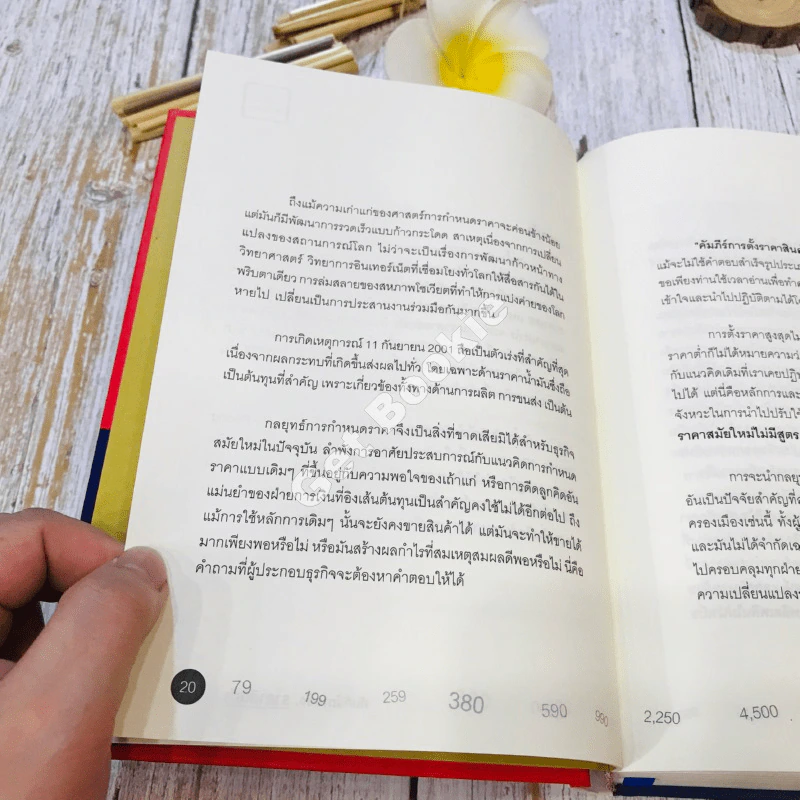 ถึงแม้ความเก่าแก่ของศาสตร์การกำหนดราคาจะค่อนข้างน้อย
แต่มันก็มีพัฒนาการรวดเร็วแบบก้าวกระโดด สาเหตุเนื่องจากการเปลี่ยน
แปลงของสถานการณ์โลก ไม่ว่าจะเป็นเรื่องการพัฒนาก้าวหน้าทาง
วิทยาศาสตร์ วิทยาการอินเทอร์เน็ตที่เชื่อมโยงทั่วโลกให้สื่อสารกันได้ใน
พริบตาเดียว การล่มสลายของสหภาพโซเวียตที่ทำให้การแบ่งค่ายของโลก
หายไป เปลี่ยนเป็นการประสานงานร่วมมือกันมากขึ้น
การเกิดเหตุการณ์ 11 กันยายน 2001 ถือเป็นตัวเร่งที่สำคัญที่สุด
เนื่องจากผลกระทบที่เกิดขึ้นส่งผลไปทั่ว โดยเฉพาะด้านราคาน้ำมันซึ่งถือ
เป็นต้นทุนที่สำคัญ เพราะเกี่ยวข้องทั้งทางด้านการผลิต การขนส่ง เป็นต้น
กลยุทธ์การกำหนดราคาจึงเป็นสิ่งที่ขาดเสียมิได้สำหรับธุรกิจ
สมัยใหม่ในปัจจุบัน ลำพังการอาศัยประสบการณ์กับแนวคิดการกำหนด
ราคาแบบเดิมๆ ที่ขึ้นอยู่กับความพอใจของเถ้าแก่ หรือการดีดลูกคิดอัน
แม่นยำของฝ่ายการเงินที่อิงเส้นต้นทุนเป็นสำคัญคงใช้ไม่ได้อีกต่อไป ถึง
แม้การใช้หลักการเดิมๆ นั้นจะยังคงขายสินค้าได้ แต่มันจะทำให้ขายได้
มากเพียงพอหรือไม่ หรือมันสร้างผลกำไรที่สมเหตุสมผลดีพอหรือไม่ นี่คือ
คำถามที่ผู้ประกอบธุรกิจจะต้องหาคำตอบให้ได้
20 79 199 259 380 590 990 2,250 4,500
"คัมภีร์การตั้งราคาสิน
แม้จะไม่ใช้คำตอบสำเร็จรูปประเภ
ขอเพียงท่านใช้เวลาอ่านเพื่อทำค
เข้าใจและนำไปปฏิบัติตามได้โด
การตั้งราคาสูงสุดไม
ราคาต่ำก็ไม่ได้หมายความว่
กับแนวคิดเดิมที่เราเคยปฏิ
ไปได้ แต่นี่คือหลักการและ
จังหวะในการนำไปปรับใช้
ราคาสมัยใหม่ไม่มีสูตร
การจะนำกลยุ
อันเป็นปัจจัยสำคัญที่ส
ครองเมืองเช่นนี้ ทั้งผู้
และมันไม่ได้จำกัดเฉ
ไปครอบคลุมทุกฝ่าย
ความเปลี่ยนแปลง
Get Bookie